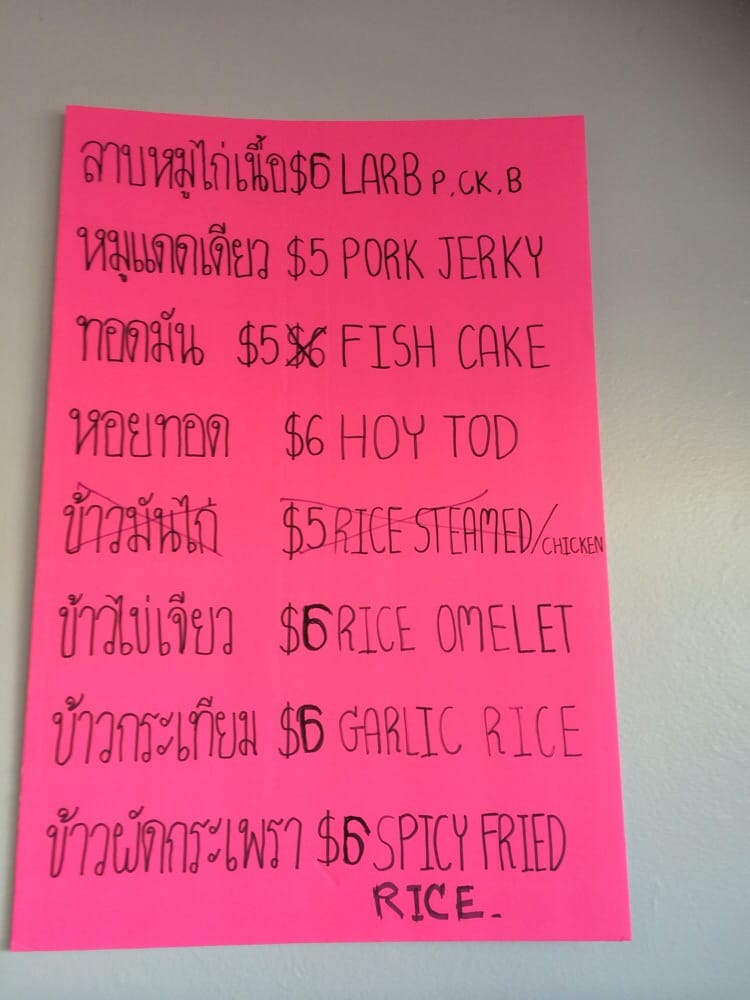 ลาบหมูไก่เนื้อ $6 LARB P, CK, B
หมูแดดเดียว $5 PORK JERKY
ทอดมัน $5 $6 FISH CAKE
หอยทอด $6 HOY TOD
ข้าวมันไก่ $5 RICE STEAMED/CHICKEN
ข้าวไข่เจียว $6 RICE OMELET
ข้าวกระเทียม $6 GARLIC RICE
ข้าวผัดกระเพรา $6 SPICY FRIED
RICE.